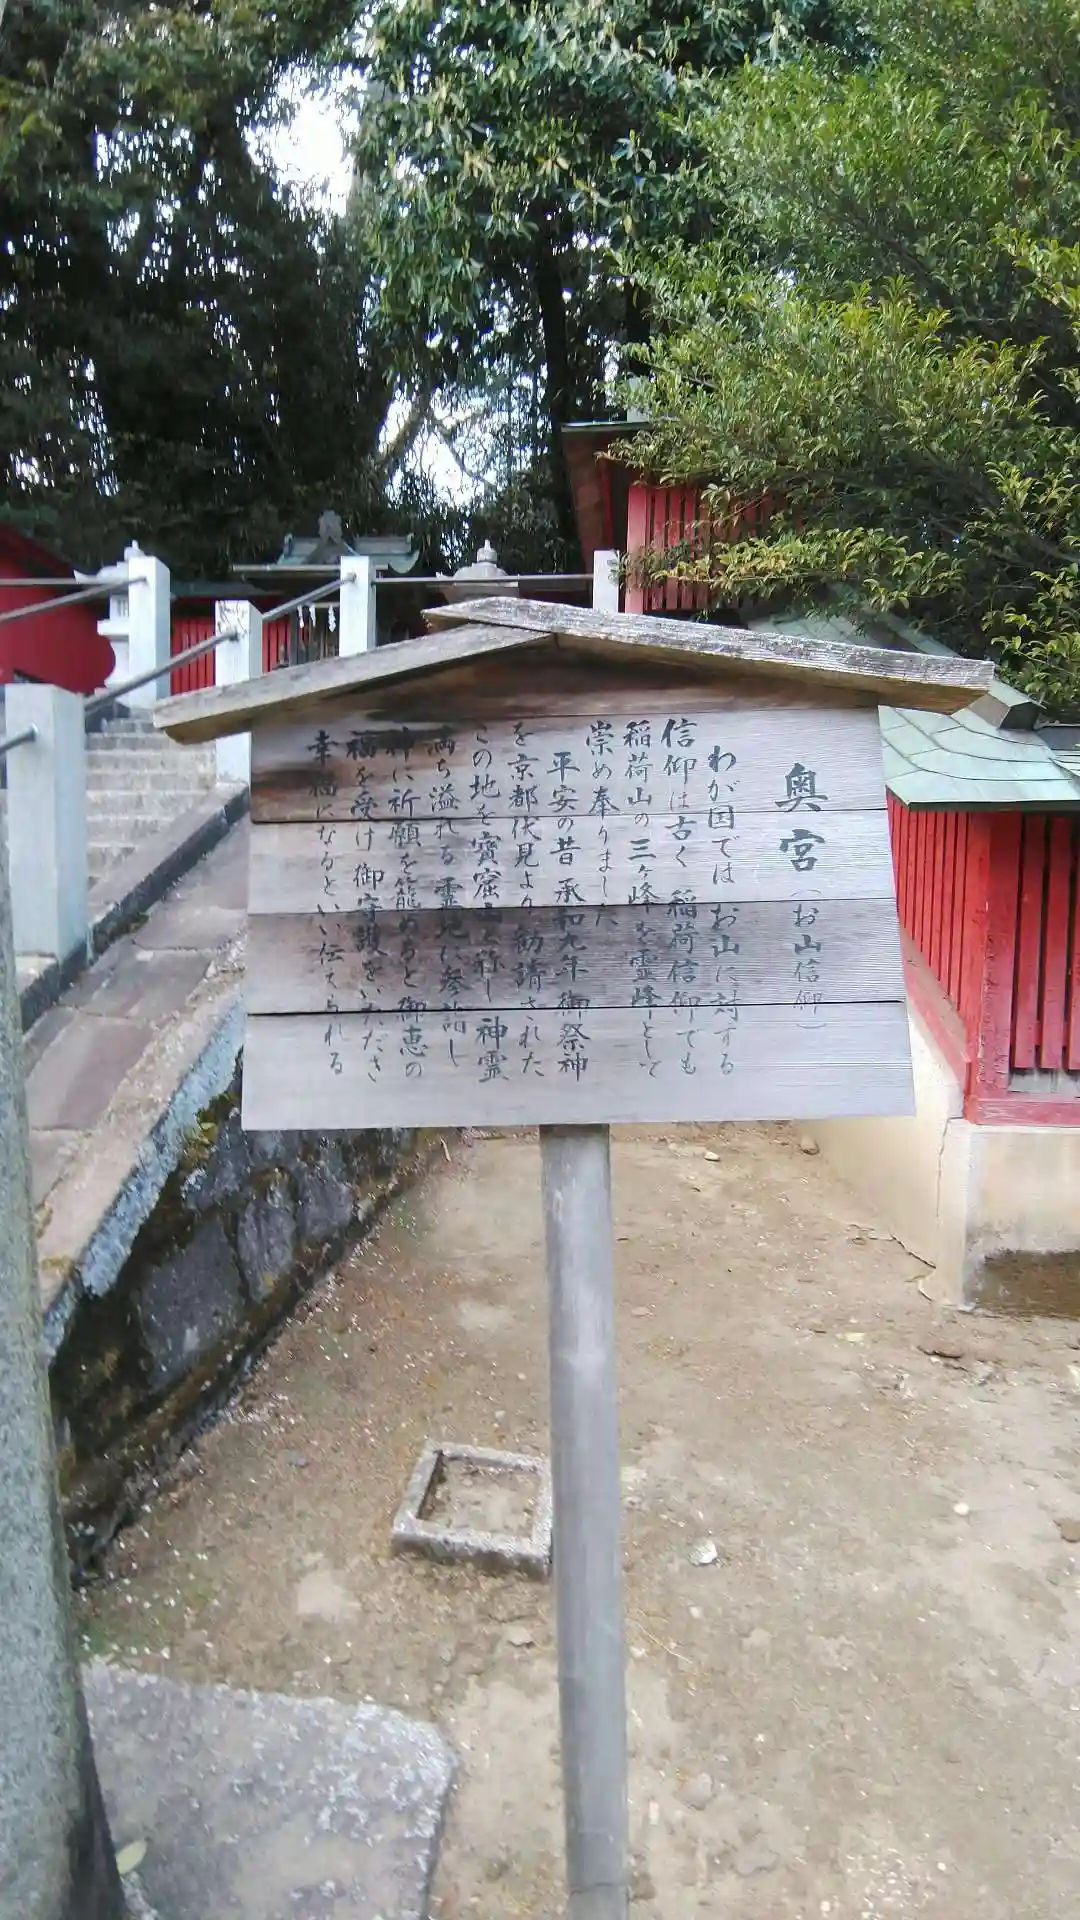 奥宮（お山信仰）
わが国では お山に対する
信仰は古く 稲荷信仰でも
稲荷山の三ヶ峰を霊峰として
崇め奉りました
平安の昔 承和九年 御祭神
を京都伏見より勧請された
この地を寳窟山と称し 神霊
満ち溢れる霊地に参詣し
神に祈願を籠めると御恵の
福を受け 御守護をいただき
幸福になるといい伝えられる